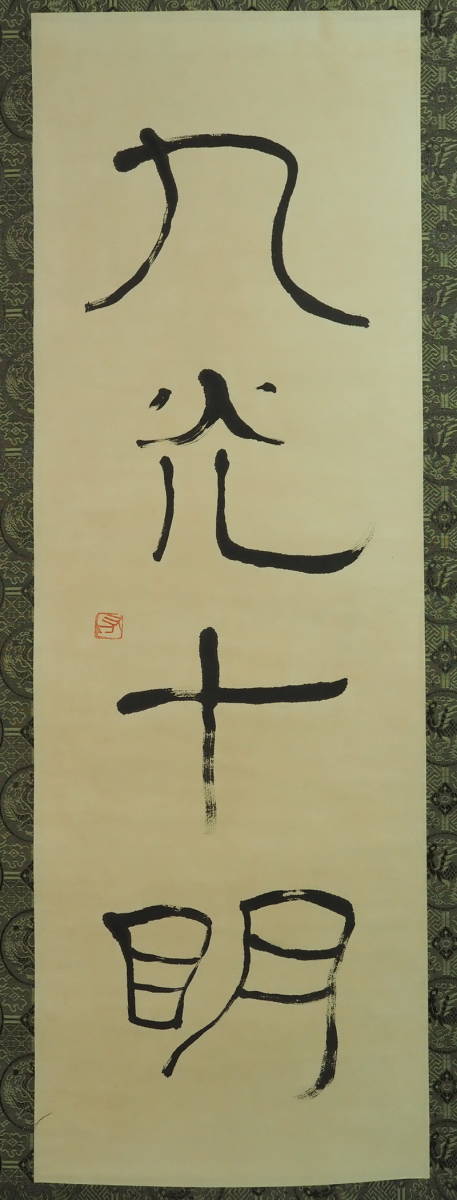 九光十明